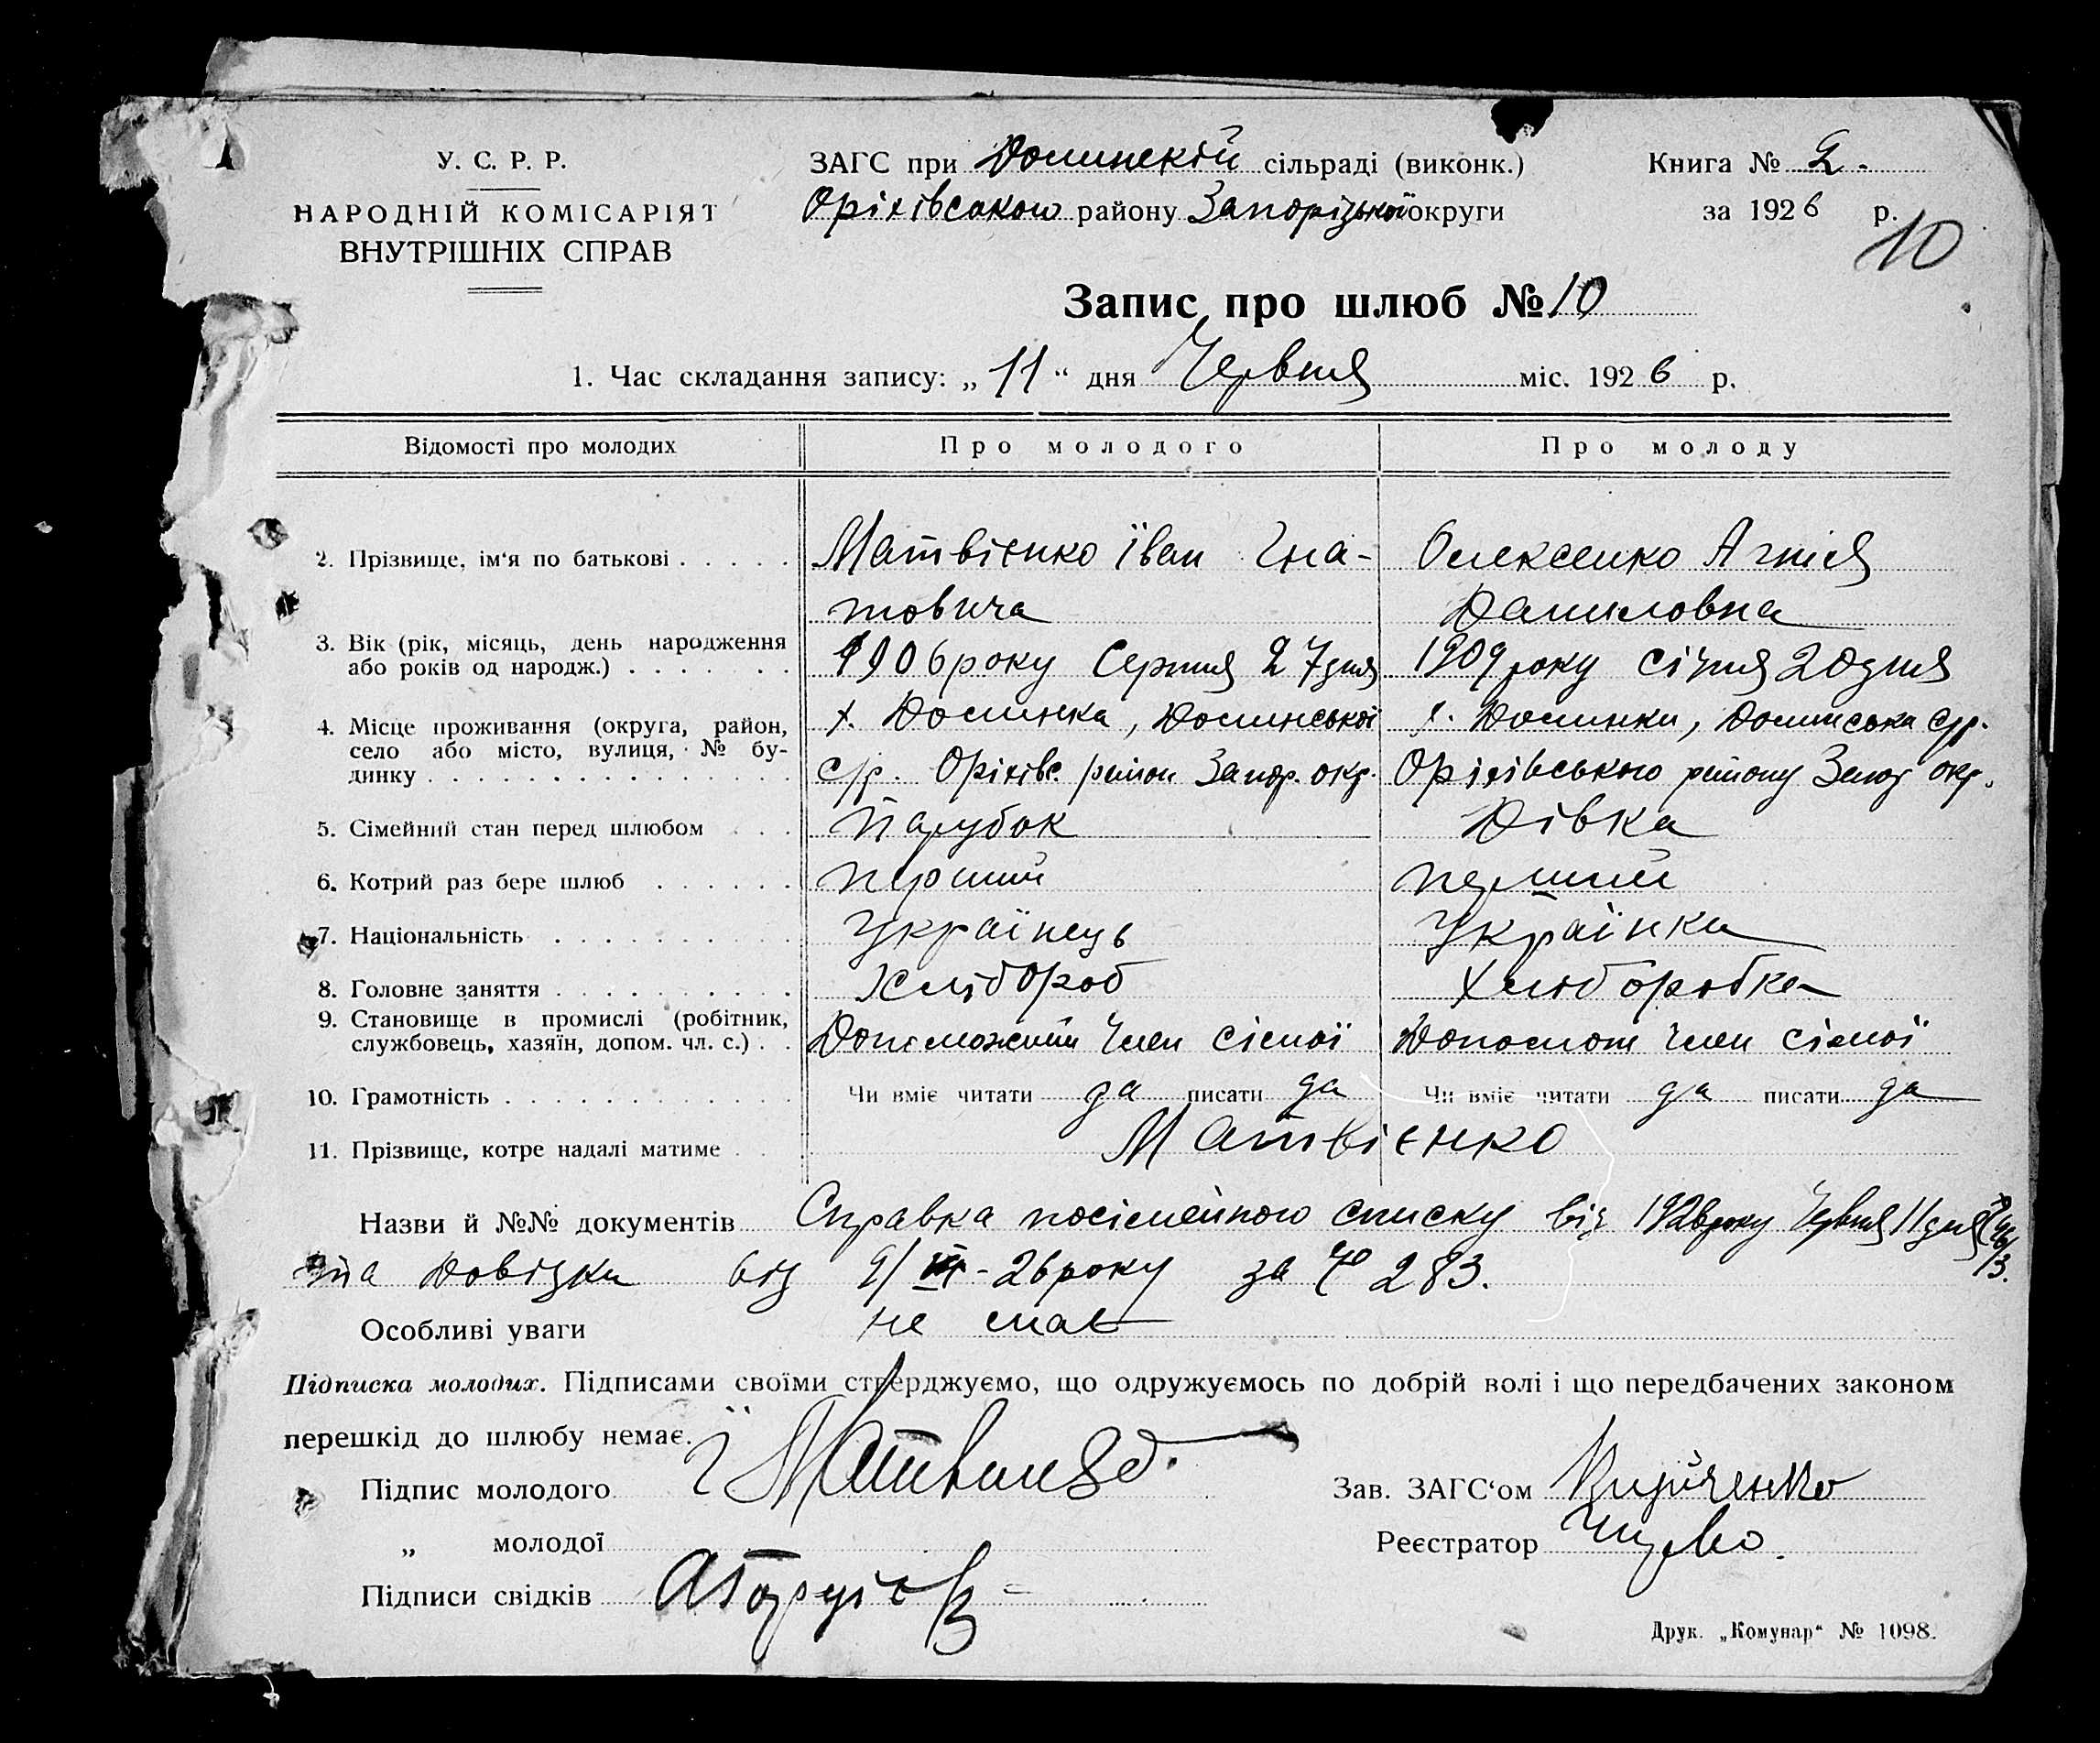 У. С. Р. Р.
НАРОДНІЙ КОМІСАРІЯТ
ВНУТРІШНІХ СПРАВ
ЗАГС при Долинській сільраді (виконк.)
Оріхівського району Запоріцької округи
Книга № 2.
за 1926 р.
10
Запис про шлюб № 10
1. Час складання запису: „ 11 “ дня Червня міс. 1926 р.
Відомості про молодих Про молодого Про молоду
2. Прізвище, ім‘я по батькові Матвієнко Їван Гна- Олексенко Агнія
товича Даниловна
3. Вік (рік, місяць, день народження
або років од народж.) 1906 року Серпня 27 дня 1909 року січня 20 дня
4. Місце проживання (округа, район, х. Долинка, Долинської х. Долинки, Долинська с/р.
село або місто, вулиця, № бу-
динку с/р. Оріхівс район Запор. окр. Оріхівського району Запор окр.
5. Сімейний стан перед шлюбом Парубок Дівка
6. Котрий раз бере шлюб перший перший
7. Національність Українець Українка
8. Головне заняття Хлібороб Хліборобка
9. Становище в промислі (робітник,
службовець, хазяїн, допом. чл. с.) Допоможний член сімої член сімої
10. Грамотність Чи вміє читати да писати да Чи вміє читати да писати да
11. Прізвище, котре надалі матиме Матвієнко
Назви й №№ документів Справка посімейного списку від 1926 року Червня 11 дня
Довідки від 9/ -26 року за № 283.
Особливі уваги не має
Підписка молодих. Підписами своїми стверджуємо, що одружуємось по добрій волі і що передбачених законом
перешкід до шлюбу немає.
Підпис молодого
„ молодої
Підписи свідків
Зав. ЗАГС‘ом Кириченко
Реєстратор
Друк. „Комунар“ № 1098.